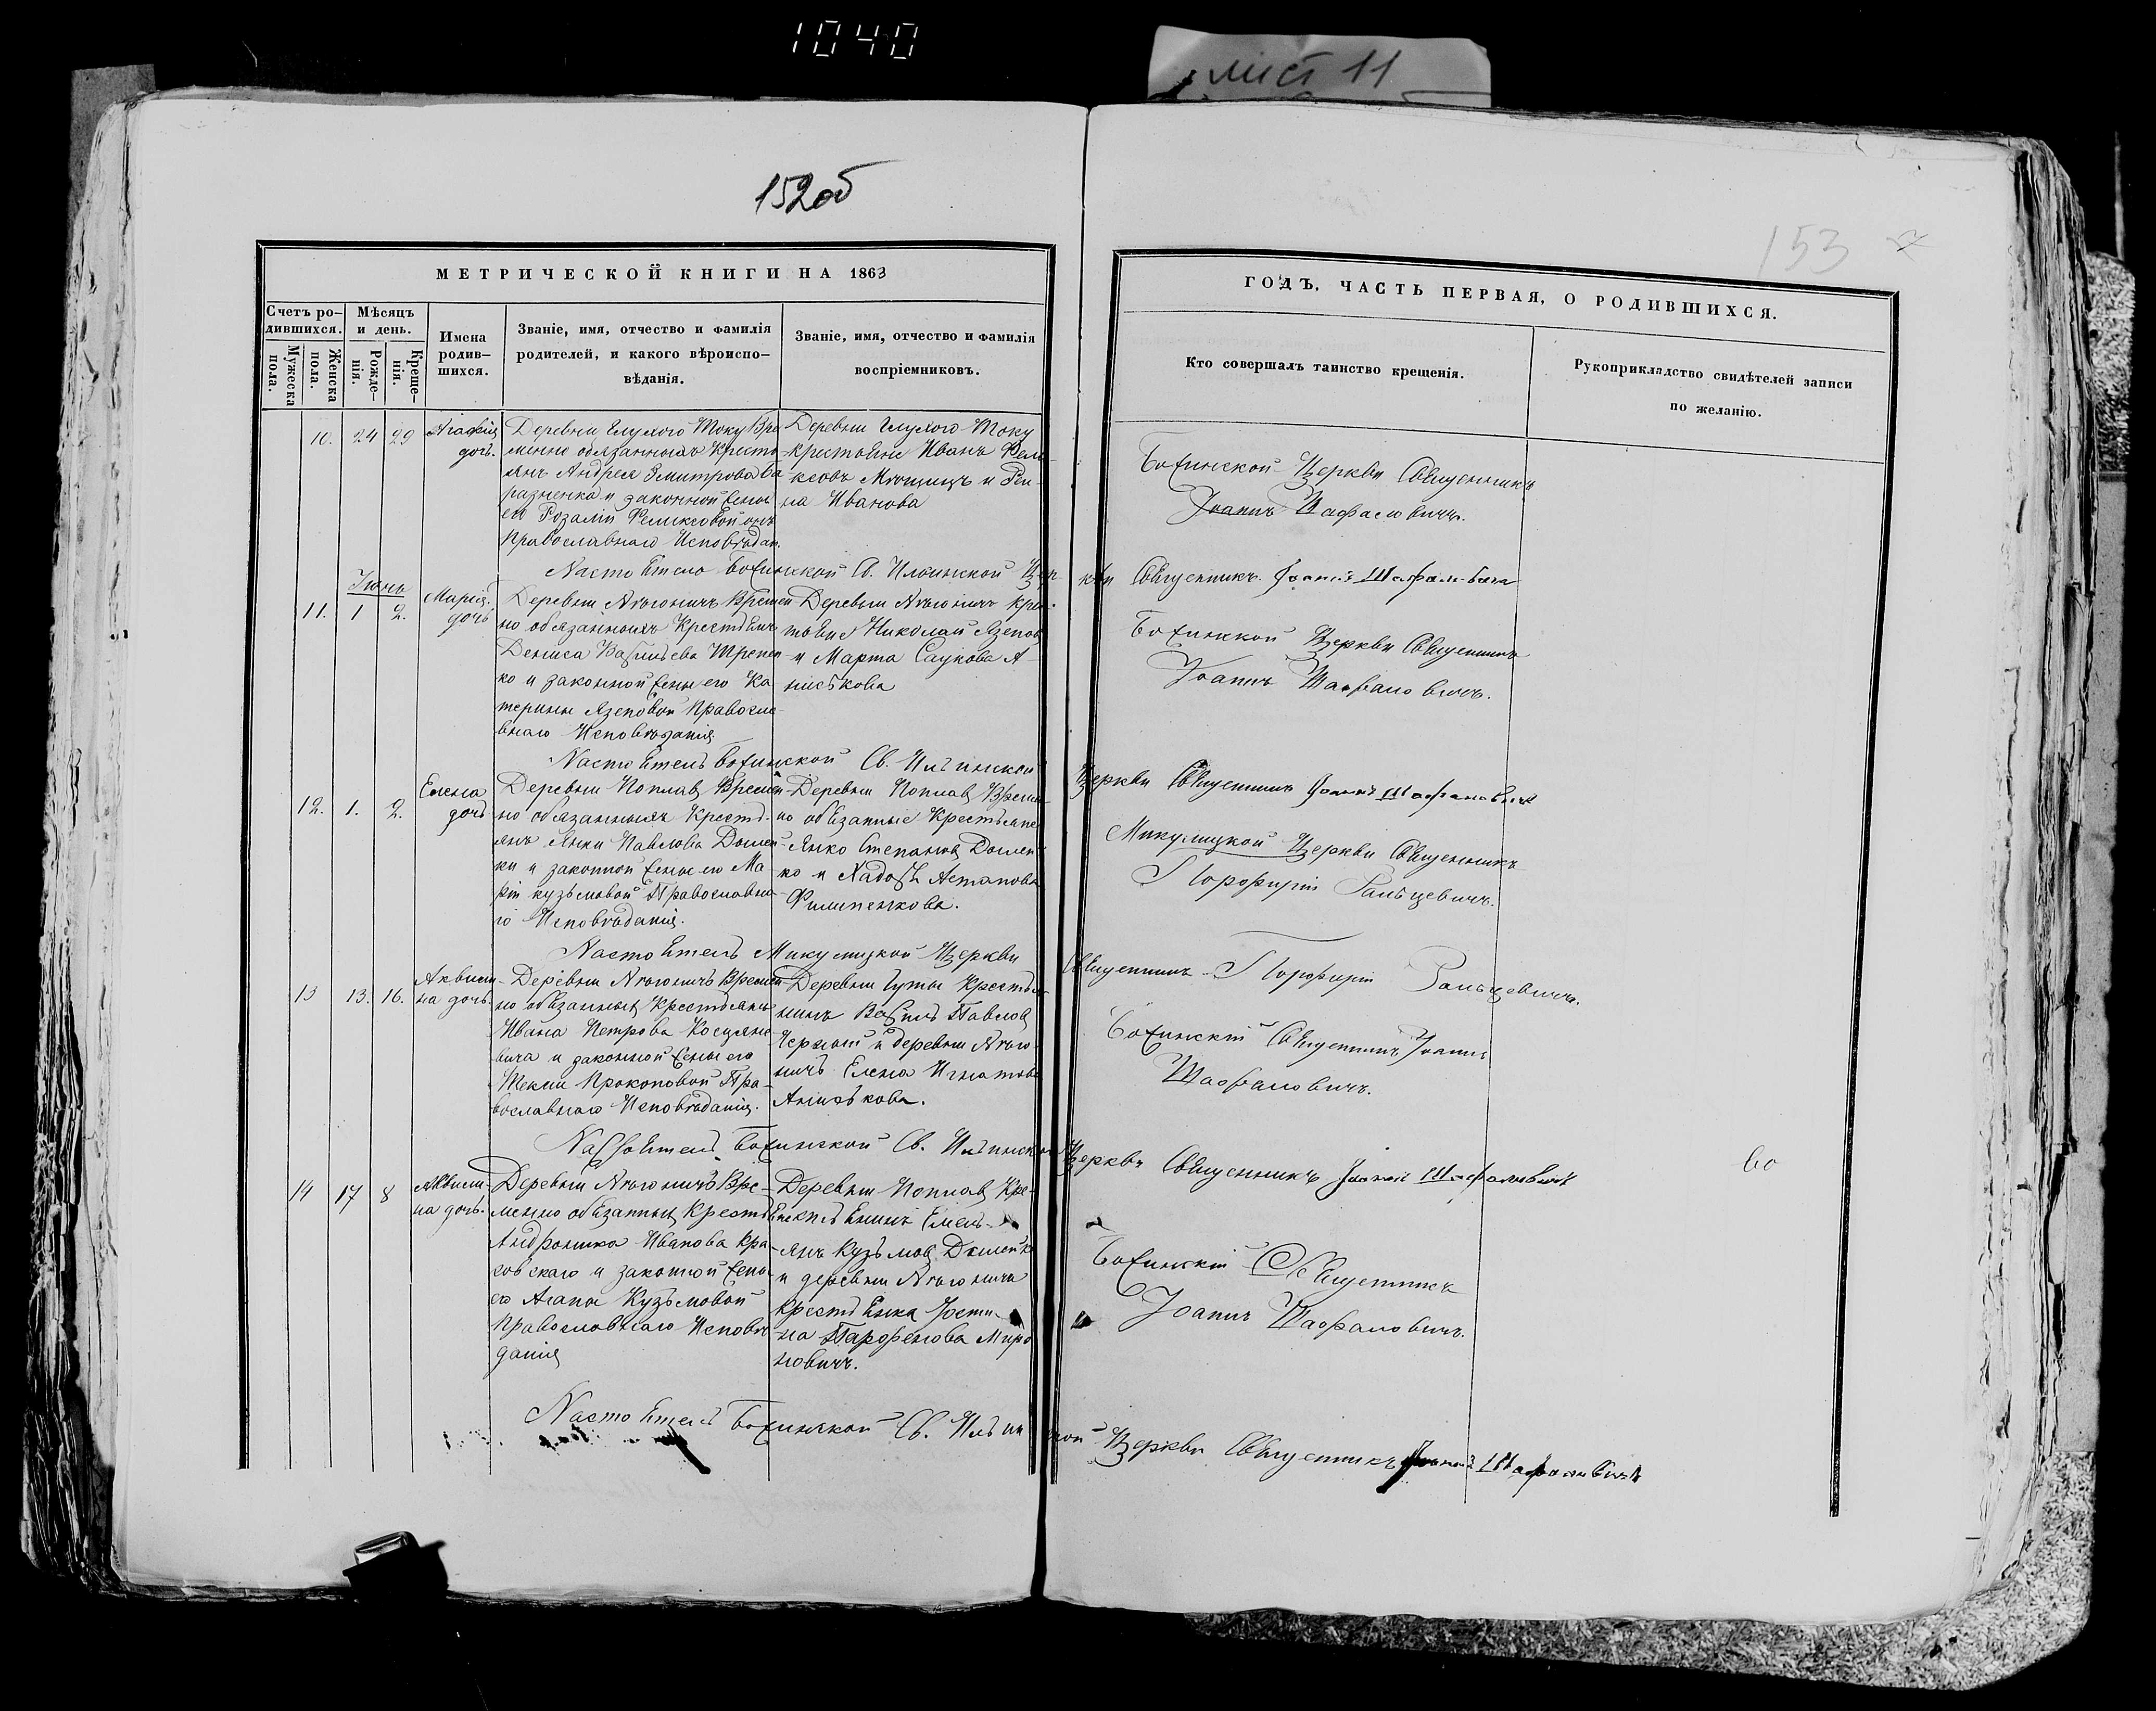 1040
лист 11
152об
153
МЕТРИЧЕСКОЙ КНИГИ НА 1863
ГОДЪ. ЧАСТЬ ПЕРВАЯ, О РОДИВШИХСЯ.
Счетъ ро-
дившихся.
Мужеска
пола.
Женска
пола.
Мѣсяцъ
и день.
Рожде-
нія.
Креще-
нія.
Имена
родив-
шихся.
Званіе, имя, отчество и фамилія
родителей, и какого вѣроиспо-
вѣданія.
Званіе, имя, отчество и фамилія
воспріемниковъ.
Кто совершалъ таинство крещенія.
Рукоприкладство свидѣтелей записи
по желанію.
10. 24 29
Агафія
дочь.
Деревни Глухого Току Вре
менно обязанныхъ Кресто
янъ Андрея Змитрова
и законной жены
его Розаліи Феликсовой онъ
Православнаго Исповѣдан.
Деревни Глухого Току
крестьяне Иванъ Фели
ксовъ и
на Иванова
Боxинской Церкви Священникъ
Іоаннъ Шафаловичъ.
Настоятель Боxинской Св. Ильинской Цер
кви Священникъ Іоаннъ Шафаловичъ
Іюнь
11. 1 2.
Марія
дочь
Деревни Времен
но обязанныхъ Крестьянъ
Дениса Васильева Шрепен
ко и законной жены его Ка
терины Язеповой Правосла
внаго Исповѣданія
Деревни крес
тьяне Николай Язепов
и Марта Саукова А
ниськова
Боxинской Церкви Священникъ
Іоаннъ Шафаловичъ.
Настоятель Боxинской Св. Ильинской
Церкви Священникъ Іоаннъ Шафаловичъ
12. 1. 2.
Елена
дочь
Деревни Поплавъ Времен
но обязанныхъ Кресть-
янъ Янки Павлова Домен
ки и законной жены его Ма
ріи Кузьмовой Православна
го Исповѣданія.
Деревни Поплавъ Времен
но обязанные Крестьяне
Янко Степановъ Домен
ко и Астапова
Филипенкова.
Микулицкой Церкви Священникъ
Порфирій Ральцевичъ.
Настоятель Микулицкой Церкви
Священникъ Порфирій Ральцевичъ.
13 13. 16.
Аквили-
на дочь.
Деревни Времен
но обязанныхъ Крестьянъ
Ивана Петрова Косцяне
вича и законной жены его
Теклии Прокоповой Пра-
вославнаго Исповѣданія.
Деревни Гуты Крестья
нинъ Василь Павловъ
Черный и деревни
Елена Игнатова
Анискова.
Боxинскій Священникъ Іоаннъ
Шафаловичъ.
Настоятель Боxинской Св. Ильинской
Церкви Священникъ Іоаннъ Шафаловичъ
60
14 17 8
Аквили-
на дочь.
Деревни Вре-
менно обязанныхъ Крестьянъ
Андроника Иванова Кра
совскаго и законной жены
его Агапы Кузьмовой
Православнаго Исповѣ
данія
Деревни Поплавъ Кре-
Емель-
янъ Кузьмовъ Доменко
и деревни
Крестьянка Юсти
на Парфенова Миро
новичъ.
Боxинскій Священникъ
Іоаннъ Шафаловичъ.
Настоятель Боxинской Св. Ильин
ской Церкви Священникъ Іоаннъ Шафаловичъ